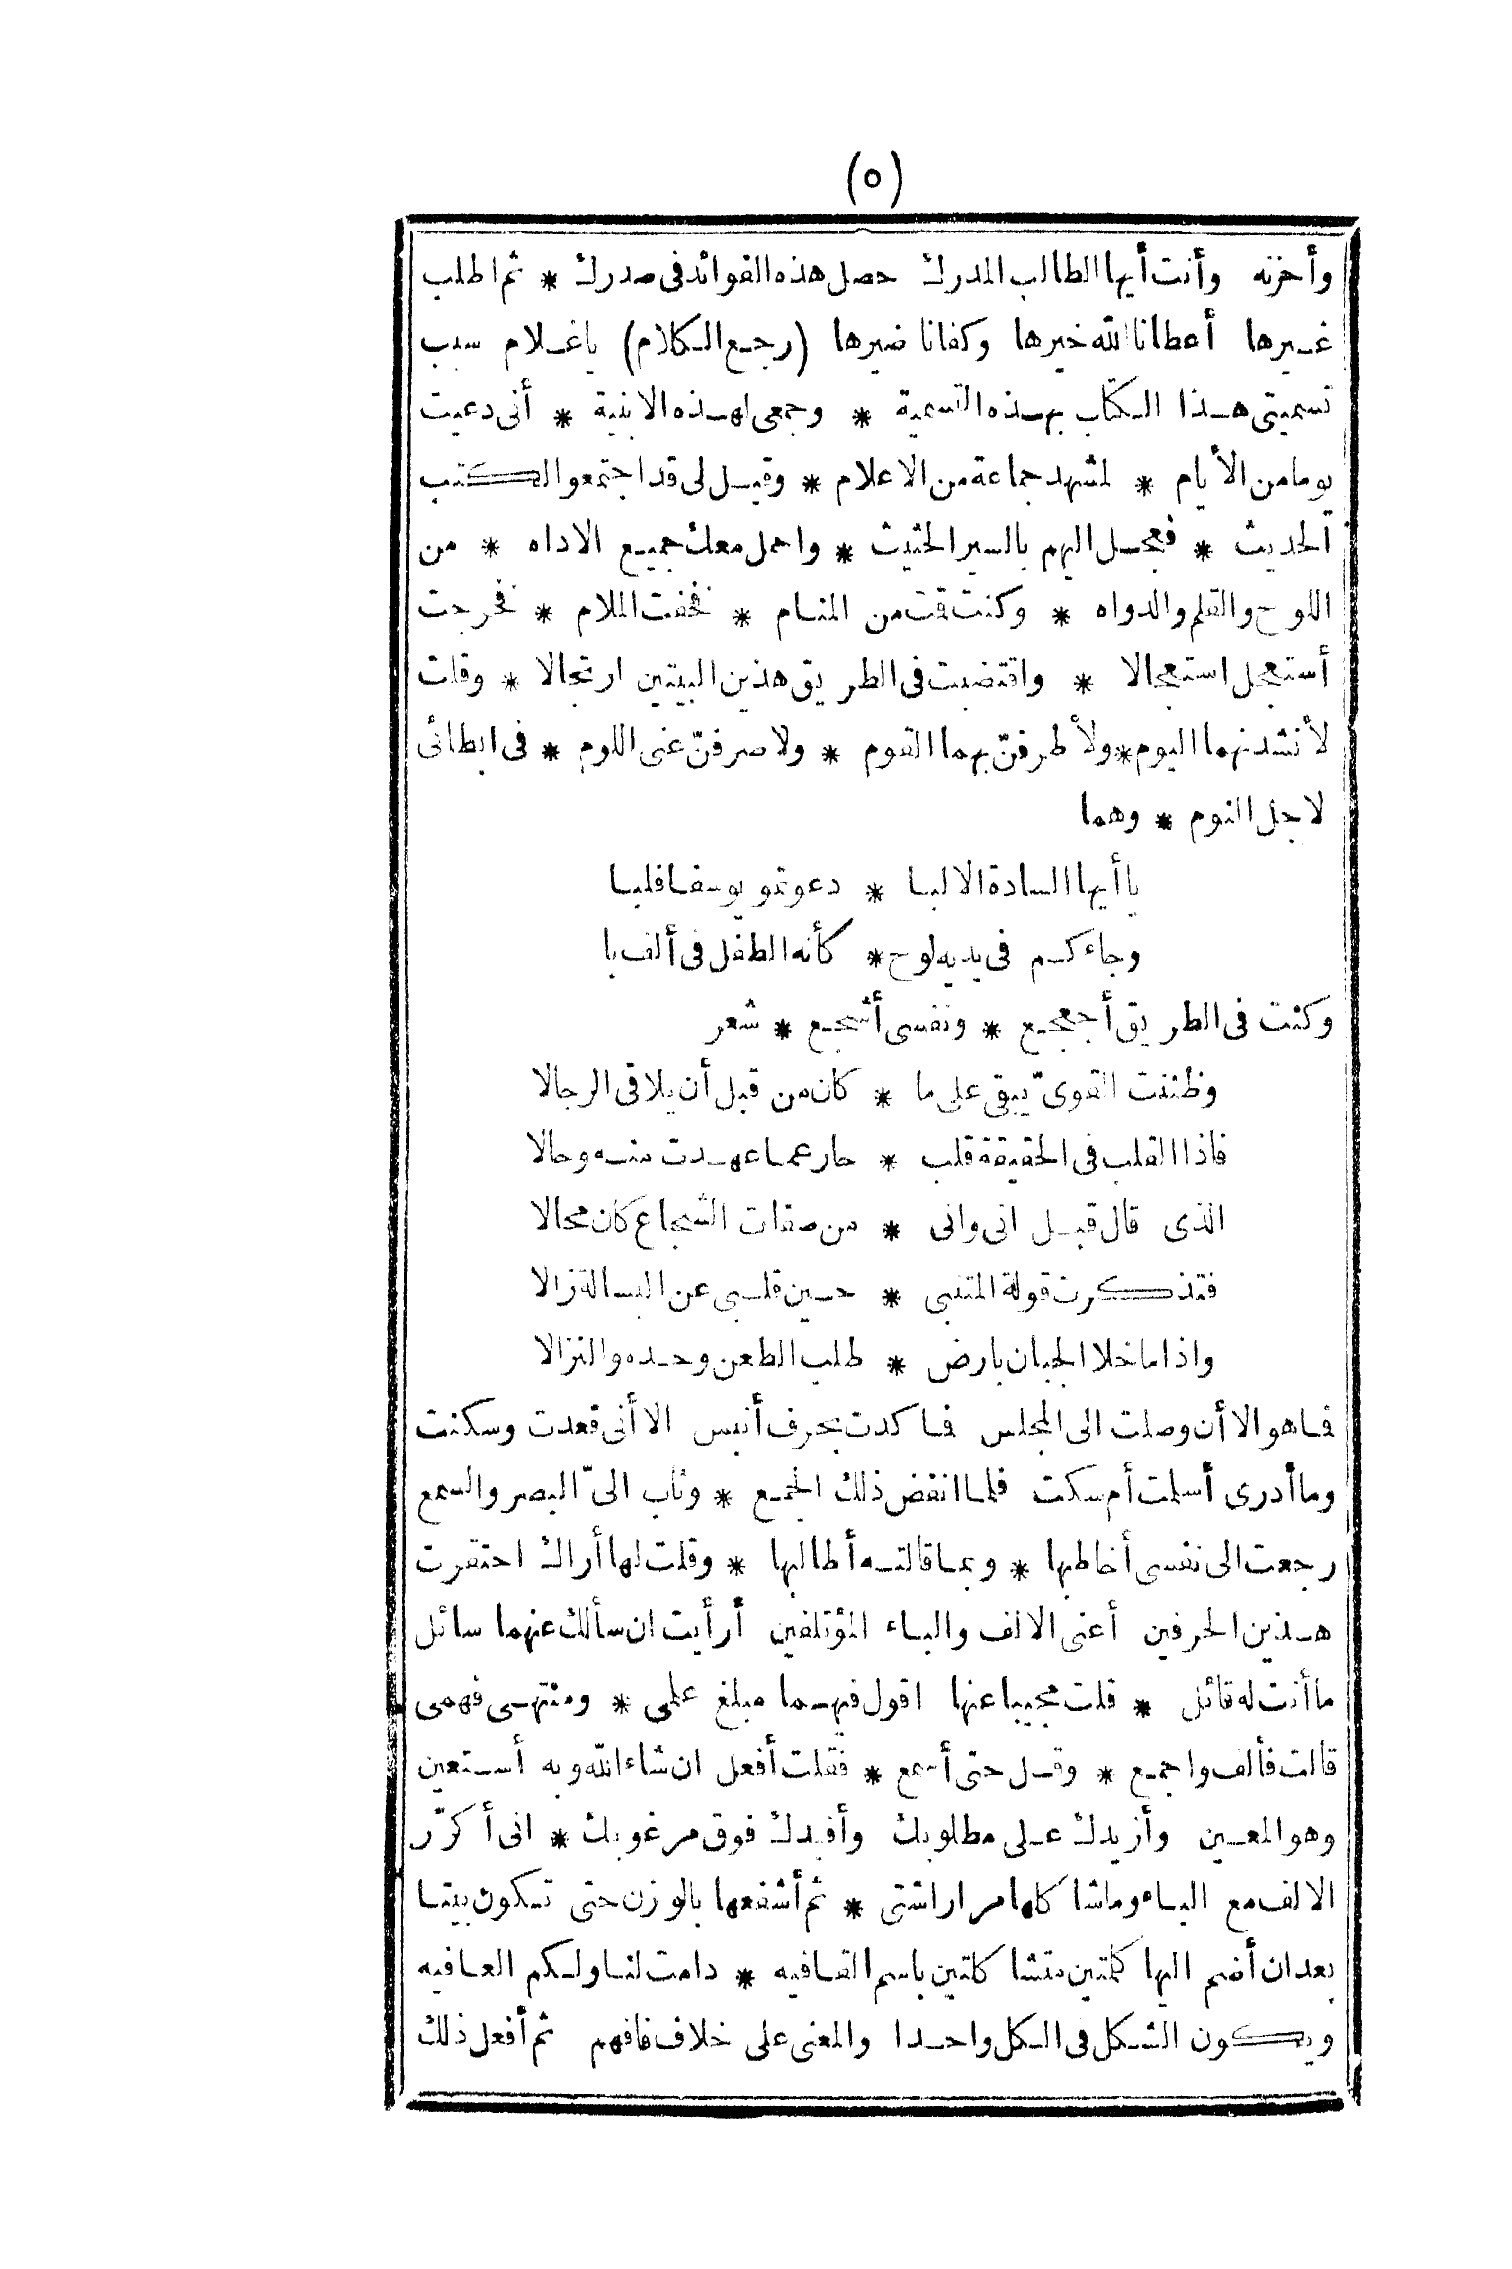 (٥)
وأحزنه وأنت أيها الطالب المدرك حصل هذه الفوائد فى صدرك * ثم اطلب
غيرها أعطانا الله خيرها وكفانا ضيرها (رجع الكلام) ياغلام سبب
تسميتى هذا الكتاب بهذه التسمية * وجمعى لهذه الابنية * أنى دعيت
يوما من الأيام * لمشهد جماعة من الاعلام * وقيل لى قد اجتمعوا لكتب
الحديث * فعجل اليهم بالسير الحثيث * واحمل معك جميع الاداه * من
اللوح والقلم والدواه * وكنت قمت من المنام * فخفت الملام * فخرجت
أستعجل استعجالا * واقتضبت فى الطريق هذين البيتين ارتجالا * وقلت
لأنشدنهما اليوم * ولأطرفنّ بهما القوم * ولاصرفنّ عنى اللوم * فى ابطائى
لاجل النوم * وهما
ياأيها السادة الالبا * دعوتمو يوسفا فلبا
وجاءكم فى يديه لوح * كأنه الطفل فى ألف با
وكنت فى الطريق أجعجع * ونفسى أشجع * شعر
وظننت القوىّ يبقى على ما * كان من قبل أن يلاقى الرجالا
فاذا القلب فى الحقيقة قلب * حار عما عهدت منه وحالا
الذى قال قبل انى وانى * من صفات الشجاع كان محالا
فتذكرت قولة المتنبى * حين قلبى عن البسالة زالا
واذا ما خلا الجبان بارض * طلب الطعن وحده والنزالا
فما هو الا أن وصلت الى المجلس فما كدت بحرف أنبس الا أنى قعدت وسكنت
وما أدرى أسلمت أم سكت فلما انفض ذلك الجمع * وثاب الىّ البصر والسمع
رجعت الى نفسى أخاطبها * وبما قالته أطالبها * وقلت لها أراك احتقرت
هذين الحرفين أعنى الالف والباء المؤتلفين أرأيت ان سألك عنهما سائل
ما أنت له قائل * قلت مجيبا عنها اقول فيهما مبلغ علمى * ومنتهى فهمى
قالت فألف واجمع * وقل حتى أسمع * فقلت أفعل ان شاء الله وبه أستعين
وهو المعين وأزيدك على مطلوبك وأفيدك فوق مرغوبك * انى أكرّر
الالف مع الباء وما شا كلها مرارا شتى * ثم أشفعها بالوزن حتى تكون بيتا
بعد ان أضم اليها كلمتين متشا كلتين باسم القافيه * دامت لنا ولكم العافيه
ويكون الشكل فى الكل واحدا والمعنى على خلاف فافهم ثم أفعل ذلك